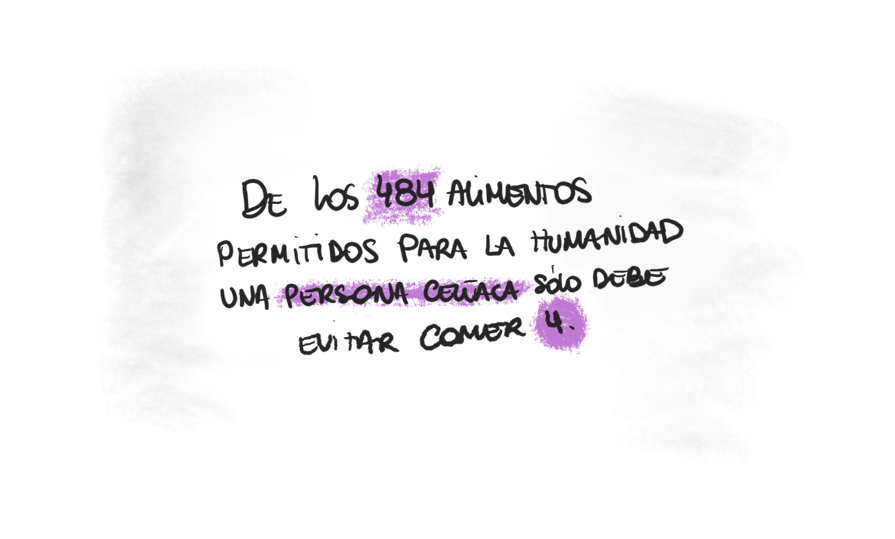 DE LOS 484 ALIMENTOS
PERMITIDOS PARA LA HUMANIDAD
UNA PERSONA CELÍACA SÓLO DEBE
EVITAR COMER 4.